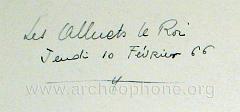 Les Alluets le Roi
Jeudi 10 Février 66
www.archeophone.org